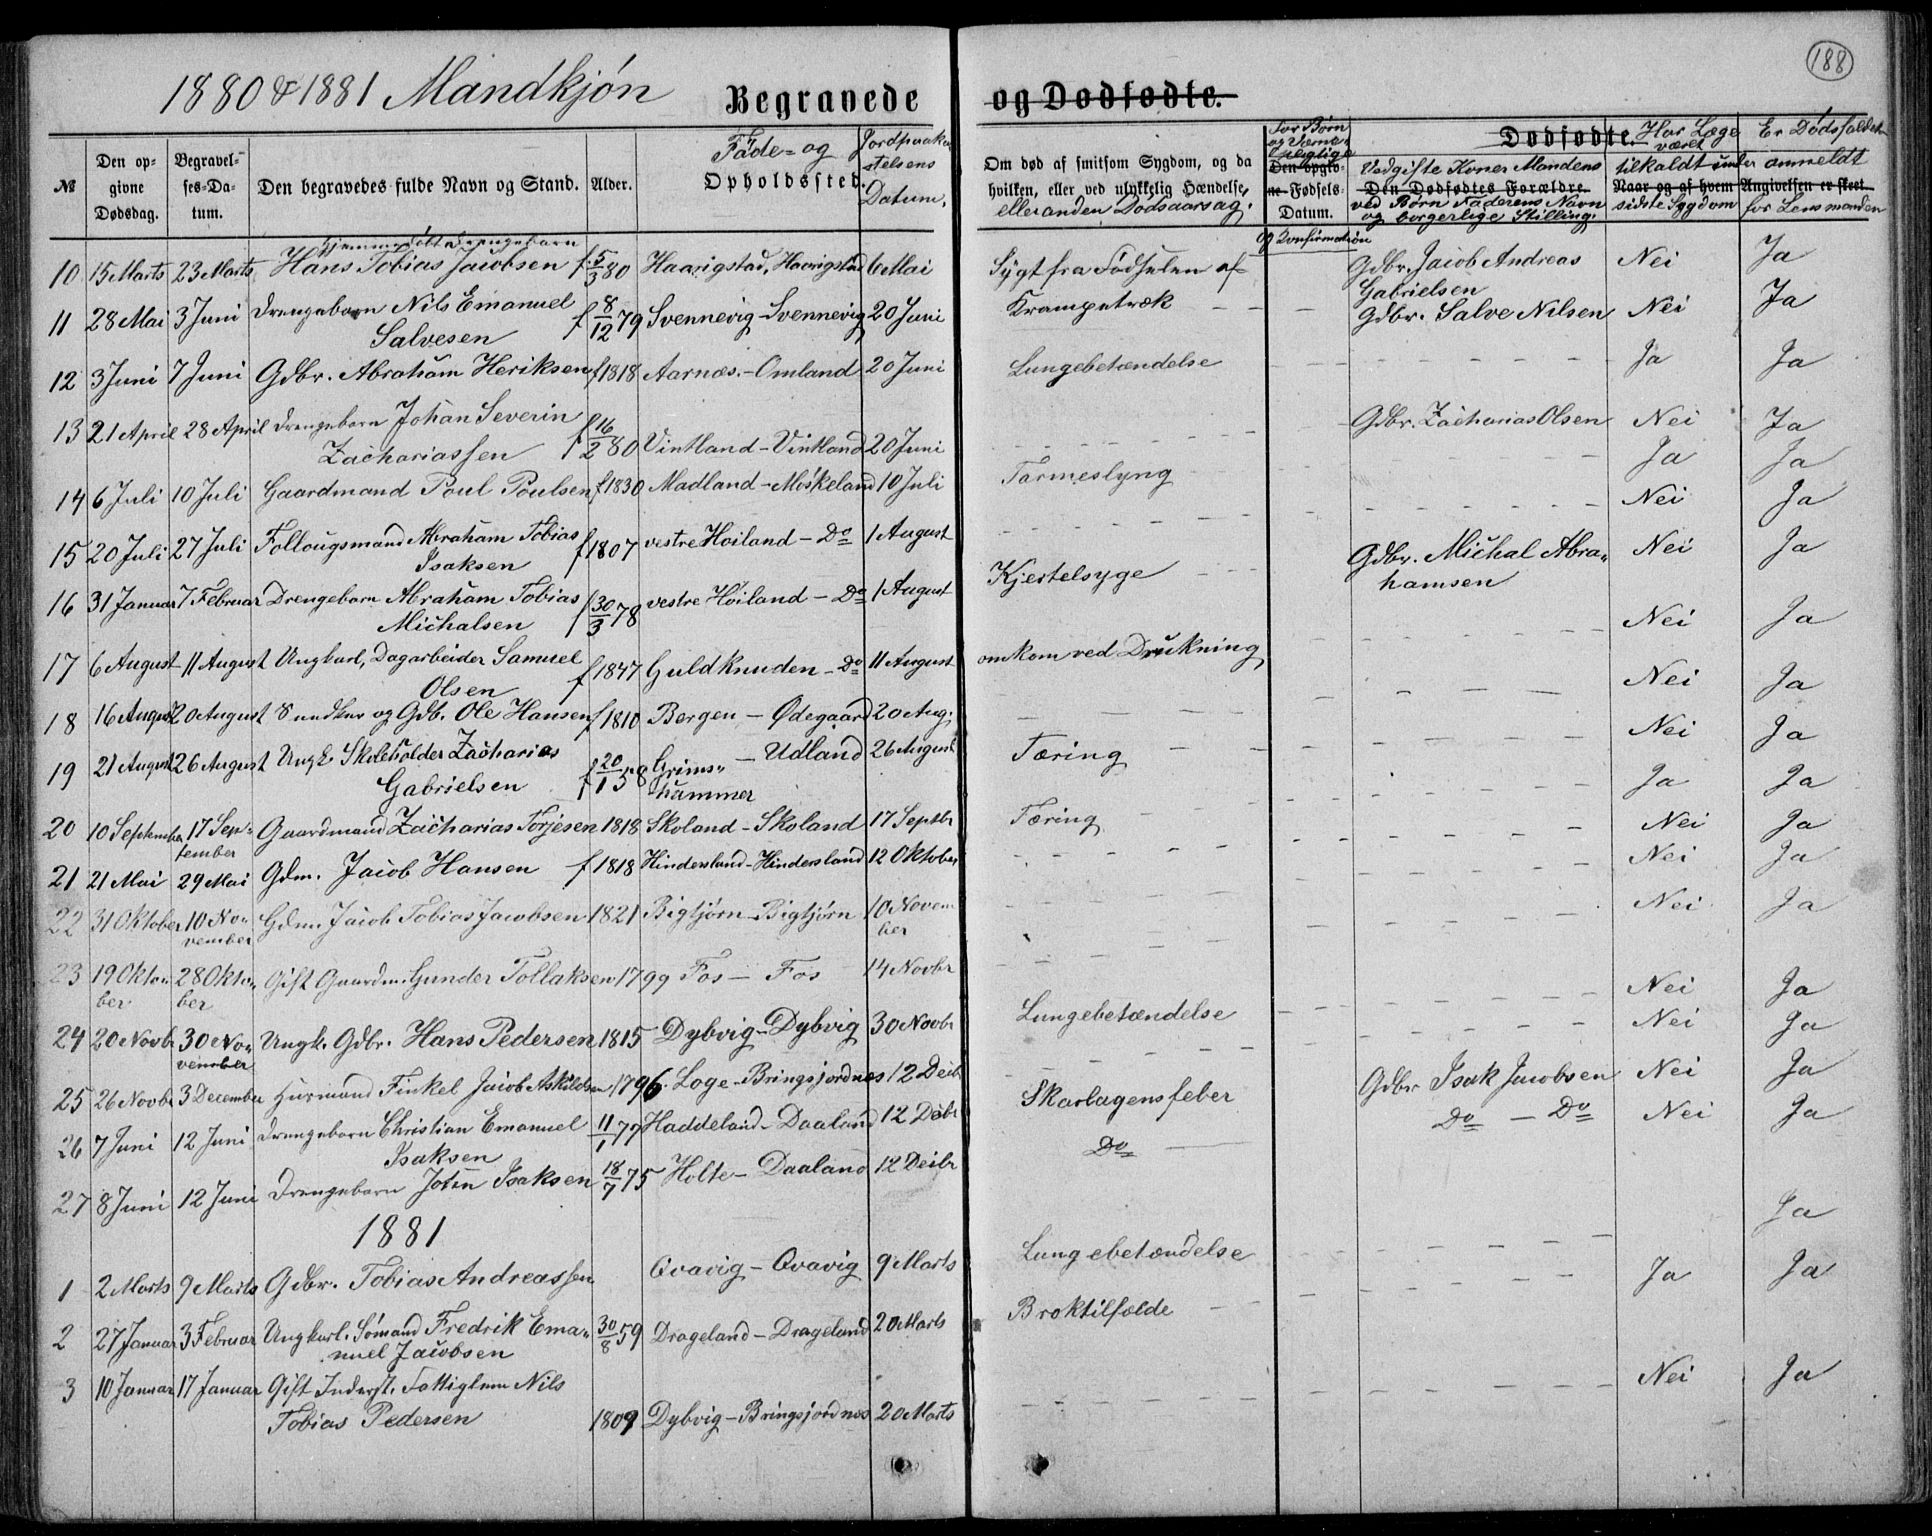 188
1880 & 1881 Mandkjøn Begravede og Dødfødte.
№
Den opgivne Dødsdag.
Begravelses-Datum.
Den begravedes fulde Navn og Stand.
Alder.
Føde- og Opholdssted.
Jordpaakastelsens Datum.
Om død af smitsom Sygdom, og da hvilken, eller ved ulykkelig Hændelse, eller anden Dødsaarsag.
For Børn og
Den opgivne Fødsels-Datum.
og Konfirmation
Dødfødte.
Ved gifte Koner Mandens
Den Dødfødtes Forældre.
ved Børn Faderens Navn og borgerlige Stilling.
Har Læge været tilkaldt under
Naar og af hvem
sidste Sygdom
Er Dødsfaldet anmeldt
Angivelsen er skeet
for Lensmanden
10 15 Marts 23 Marts Hjemmedøbt Drengebarn Hans Tobias Jacobsen f. 5/3 80 Haarigstad, Haarigstad 6 Mai Sygt fra Fødselen af Gdbr. Jacob Andreas Gabrielsen Nei Ja
11 28 Mai 3 Juni Drengebarn Nils Emanuel Salvesen f 8/12 79 Svennevig - Svennevig 20 Juni Krampetræk - - - Gdbr. Salve Nilsen Nei Ja
12 3 Juni 7 Juni Gdbr. Abraham Heriksen f 1818 Aarnæs. - Omland 20 Juni Lungebetændelse - - - Ja Ja
13 21 April 28 April Drengebarn Johan Severin Zachariassen f 16/2 80 Vintland - Vintland 20 Juni - - - Gdbr. Zacharias Olsen Nei Ja
14 6 Juli 10 Juli Gaardmand Poul Poulsen f 1830 Madland - Møskeland 10 Juli Tarmeslyng - - - Ja Ja
15 20 Juli 27 Juli Follougsmand Abraham Tobias Isaksen f 1807 vestre Høiland - Do 1 August - - - Nei Ja
16 31 Januar 7 Februar Drengebarn Abraham Tobias Michalsen f 30/3 78 vestre Høiland - Do 1 August Kjertelsyge - - - Gdbr. Michal Abrahamsen Nei Ja
17 6 August 11 August Ungkarl, Dagarbeider Samuel Olsen f 1847 Guldknuden - Do 11 August omkom ved Drukning Nei Ja
18 16 August 20 August Snedker og Gdb. Ole Hansen f 1810 Bergen - Ødegaard 20 Aug. - - - Nei Ja
19 21 August 26 August Ungk. Skoleholder Zacharias Gabrielsen f 20/1 58 Grimshammer - Udland 26 August Tæring - - - Nei Ja
Ja Ja
20 10 September 17 September Gaardmand Zacharias Torjesen 1818 Skoland - Skoland 17 Septbr Tæring - - - Nei Ja
21 21 Mai 29 Mai Gdm. Jacob Hansen f 1818 Hindersland - Hindersland 12 Oktober - - - Nei Ja
22 31 Oktober 10 November Gdm. Jacob Tobias Jacobsen 1821 Bigtjørn - Bigtjørn 10 November - - - Nei Ja
23 19 Oktober 28 Oktober Gift Gaardm. Gunder Tollaksen 1799 Fos - Fos 14 Novbr - - - Nei Ja
24 20 Novbr 30 November Ungk. Gdbr. Hans Pedersen 1815 Dybvig - Dybvig 30 Novbr Lungebetændelse - - - Nei Ja
25 26 Novbr 3 December Husmand Finkel Jacob Askildsen 1796 Loge - Bringsjordnes 12 Decbr - - -
26 7 Juni 12 Juni Drengebarn Christian Emanuel Isaksen 11/1 77 Haddeland - Daaland 12 Decbr Skarlagensfeber Gdbr Isak Jacobsen Nei Ja
27 8 Juni 12 Juni Drengebarn Isaksen 18/7 75 Holte - Daaland 12 Decbr Do - Do - Do Nei Ja
1881
1 2 Marts 9 Marts Gdbr. Tobias Andreassen Qvavig - Qvavig 9 Marts Lungebetændelse - - - Ja
2 27 Januar 3 Februar Ungkarl. Sømand Fredrik Emanuel Jacobsen 30/8 59 Drageland - Drageland 20 Marts Broktilfælde - - - Ja Ja
3 10 Januar 17 Januar Gift Inderst. Fattiglem Nils Tobias Pedersen 1809 Dybvig - Bringsjordnes 20 Marts - - - Nei Ja